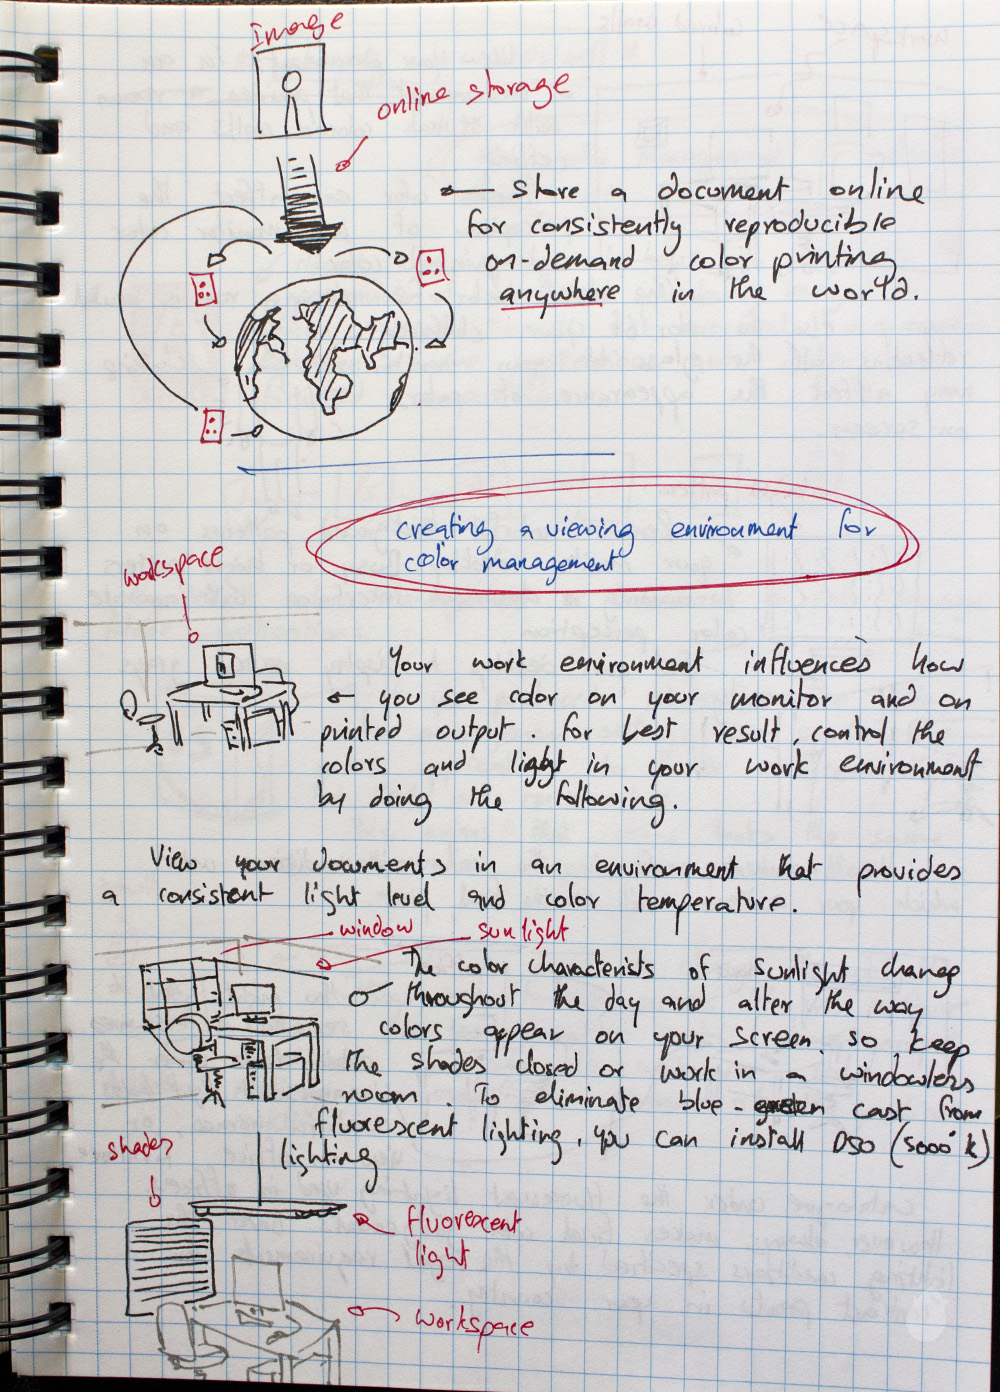 Image
online storage
store a document online
for consistently reproducible
on-demand color printing
anywhere in the world.
creating a viewing environment for
color management
workspace
Your work environment influences how
you see color on your monitor and on
printed output. For best result, control the
colors and light in your work environment
by doing the following.
View your documents in an environment that provides
a consistent light level and color temperature.
window
sunlight
The color characterists of sunlight change
throughout the day and alter the way
colors appear on your screen. so keep
the shades closed or work in a windowless
room. To eliminate blue-green cast from
fluorescent lighting, you can install D50 (5000° k)
lighting
shades
fluorescent
light
workspace